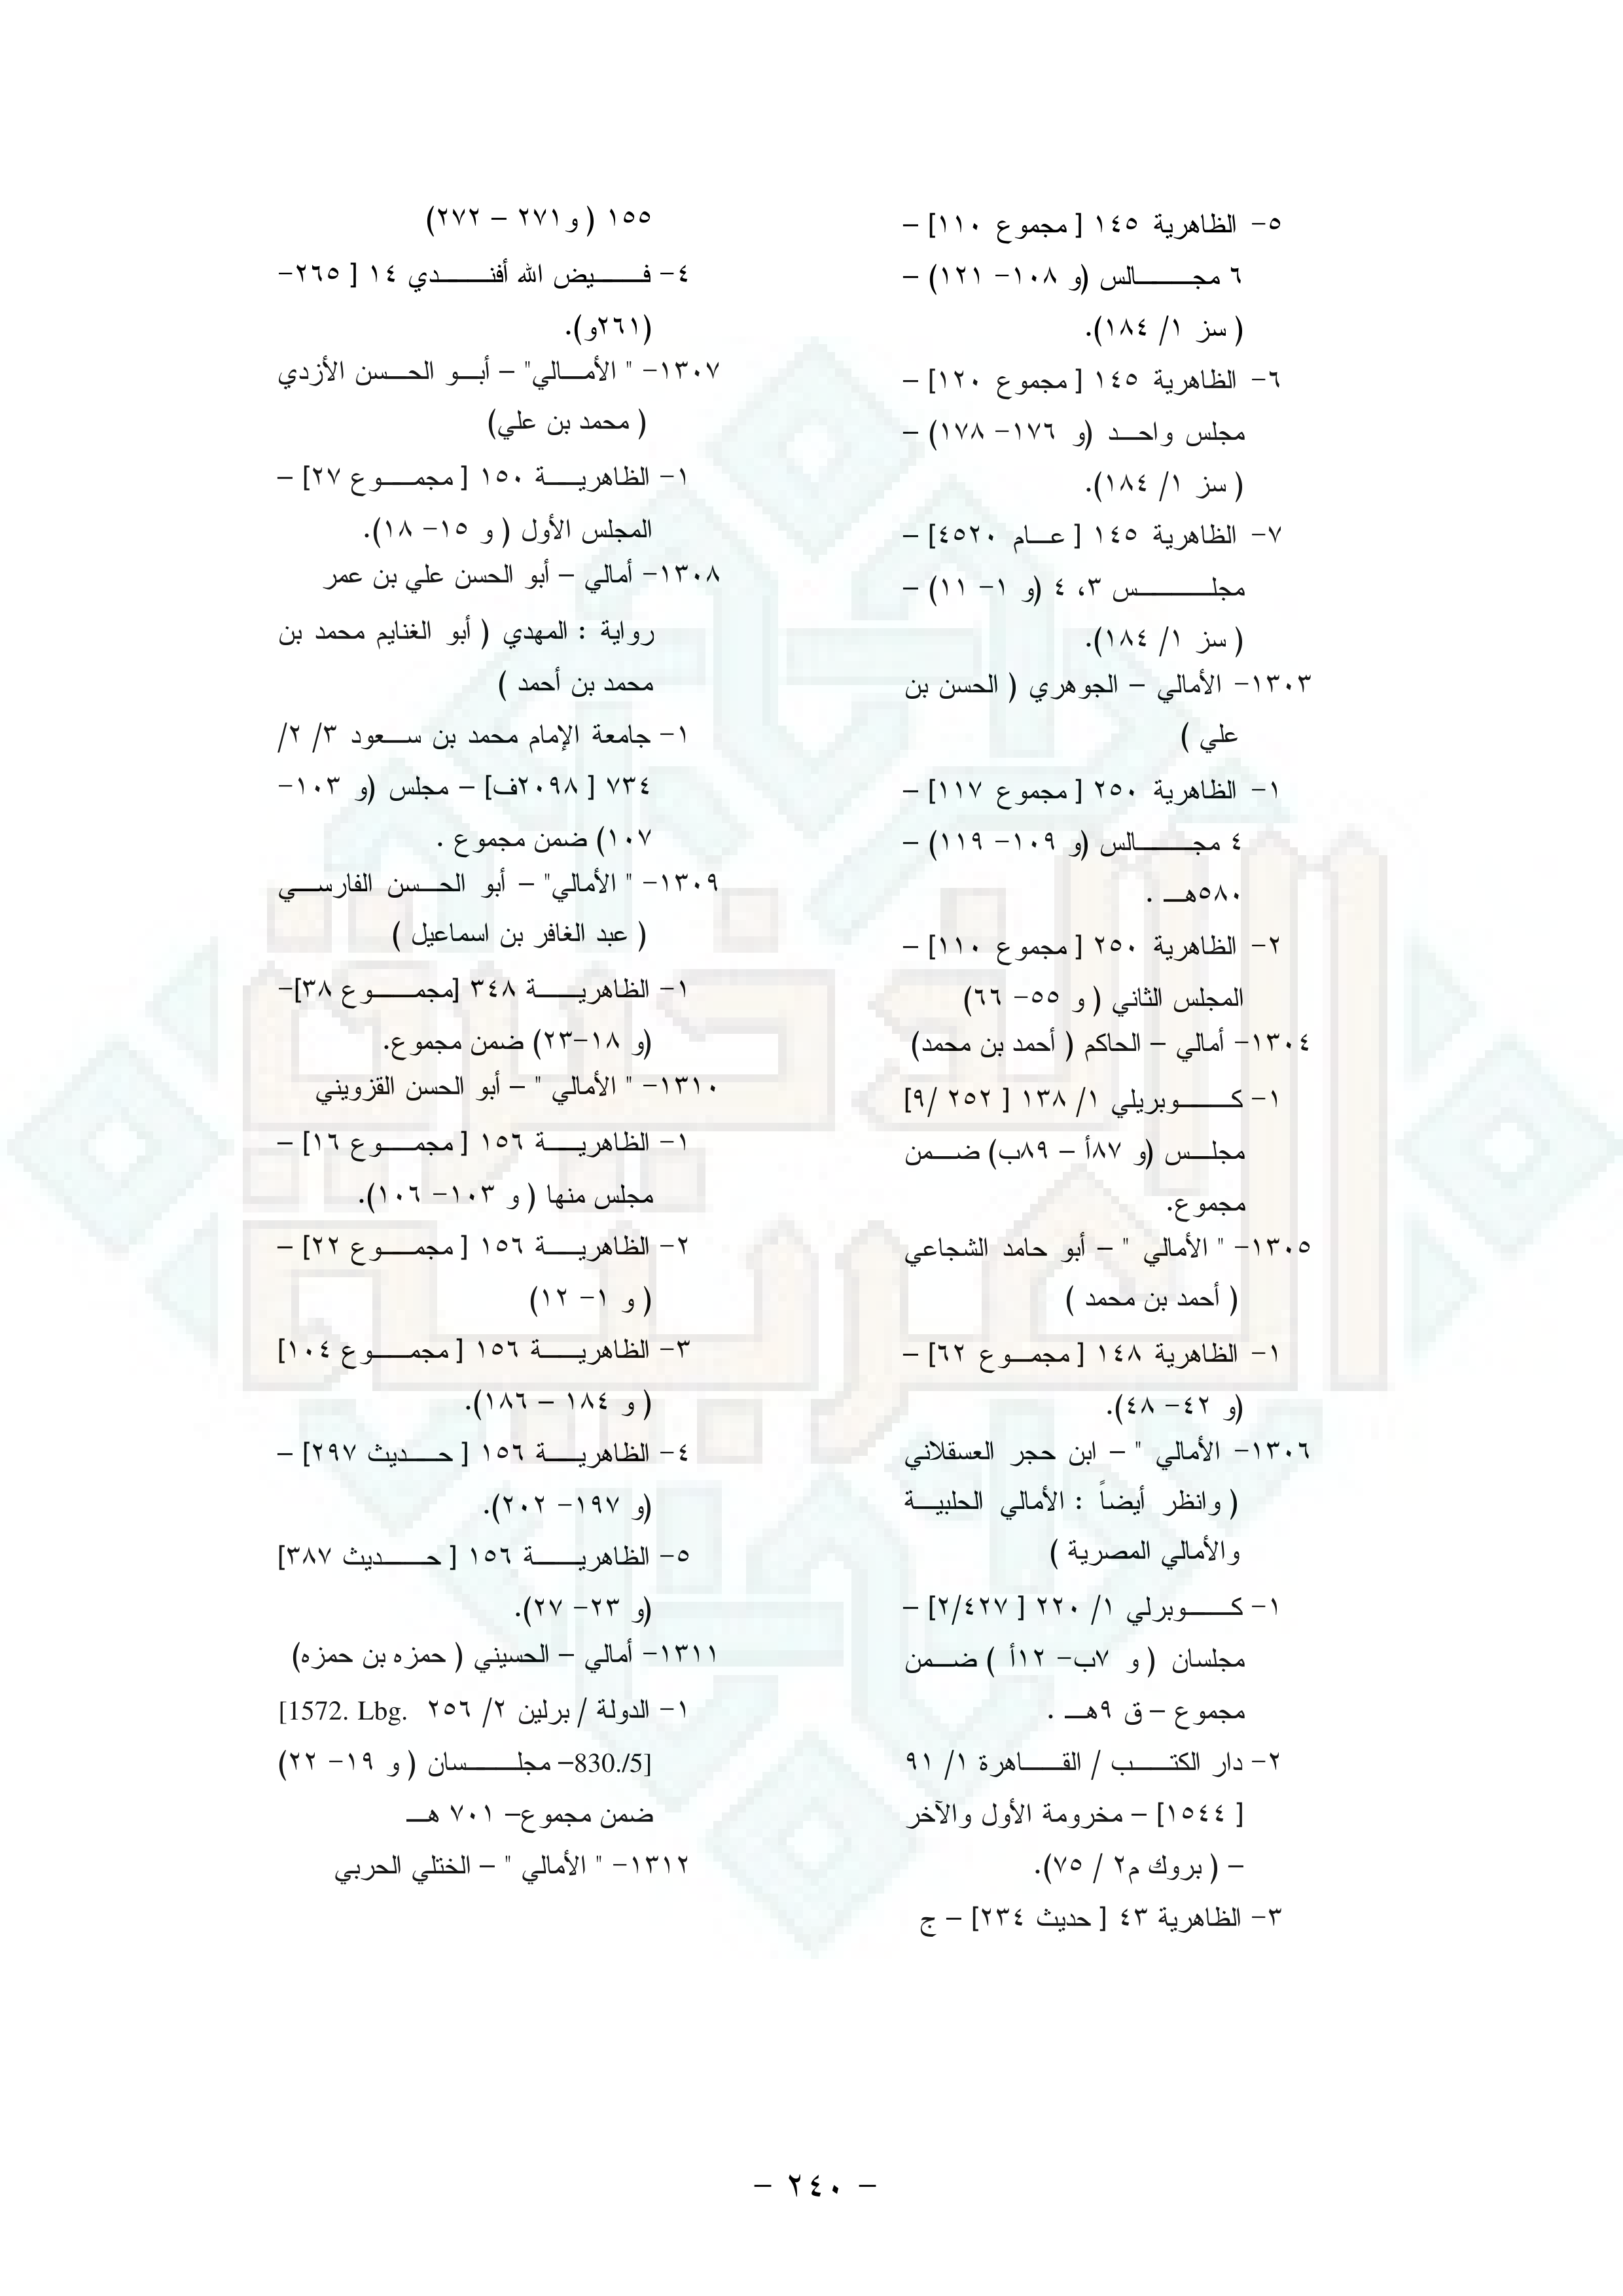 ٥- الظاهرية ١٤٥ [ مجموع ١١٠] –
٦ مجالس (و ١٠٨- ١٢١) –
( سز ١/ ١٨٤).
٦- الظاهرية ١٤٥ [ مجموع ١٢٠] –
مجلس واحد (و ١٧٦- ١٧٨) –
( سز ١/ ١٨٤).
٧- الظاهرية ١٤٥ [ عام ٤٥٢٠] –
مجلس ٣، ٤ (و ١- ١١) –
( سز ١/ ١٨٤).
١٣٠٣- الأمالي – الجوهري ( الحسن بن
علي )
١- الظاهرية ٢٥٠ [ مجموع ١١٧] –
٤ مجالس (و ١٠٩- ١١٩) –
٥٨٠هـ .
٢- الظاهرية ٢٥٠ [ مجموع ١١٠] –
المجلس الثاني ( و ٥٥- ٦٦)
١٣٠٤- أمالي – الحاكم ( أحمد بن محمد)
١- كوبريلي ١/ ١٣٨ [ ٢٥٢ /٩]
مجلس (و ٨٧أ – ٨٩ب) ضمن
مجموع.
١٣٠٥- " الأمالي " – أبو حامد الشجاعي
( أحمد بن محمد )
١- الظاهرية ١٤٨ [ مجموع ٦٢] –
(و ٤٢- ٤٨).
١٣٠٦- الأمالي " – ابن حجر العسقلاني
( وانظر أيضاً : الأمالي الحلبية
والأمالي المصرية )
١- كوبرلي ١/ ٢٢٠ [ ٢/٤٢٧] –
مجلسان ( و ٧ب- ١٢أ ) ضمن
مجموع – ق ٩هـ .
٢- دار الكتب / القاهرة ١/ ٩١
[ ١٥٤٤] – مخرومة الأول والآخر
– ( بروك م٢ / ٧٥).
٣- الظاهرية ٤٣ [ حديث ٢٣٤] – ج
١٥٥ ( و ٢٧١ – ٢٧٢)
٤- فيض الله أفندي ١٤ [ ٢٦٥-
(٢٦١و).
١٣٠٧- " الأمالي" – أبو الحسن الأزدي
( محمد بن علي)
١- الظاهرية ١٥٠ [ مجموع ٢٧] –
المجلس الأول ( و ١٥- ١٨).
١٣٠٨- أمالي – أبو الحسن علي بن عمر
رواية : المهدي ( أبو الغنايم محمد بن
محمد بن أحمد )
١- جامعة الإمام محمد بن سعود ٣/ ٢/
٧٣٤ [ ٢٠٩٨ف] – مجلس (و ١٠٣-
١٠٧) ضمن مجموع .
١٣٠٩- " الأمالي" – أبو الحسن الفارسي
( عبد الغافر بن اسماعيل )
١- الظاهرية ٣٤٨ [مجموع ٣٨]-
(و ١٨-٢٣) ضمن مجموع.
١٣١٠- " الأمالي " – أبو الحسن القزويني
١- الظاهرية ١٥٦ [ مجموع ١٦] –
مجلس منها ( و ١٠٣- ١٠٦).
٢- الظاهرية ١٥٦ [ مجموع ٢٢] –
( و ١- ١٢)
٣- الظاهرية ١٥٦ [ مجموع ١٠٤]
( و ١٨٤ – ١٨٦).
٤- الظاهرية ١٥٦ [ حديث ٢٩٧] –
(و ١٩٧- ٢٠٢).
٥- الظاهرية ١٥٦ [ حديث ٣٨٧]
(و ٢٣- ٢٧).
١٣١١- أمالي – الحسيني ( حمزه بن حمزه)
١- الدولة / برلين ٢/ ٢٥٦ [1572. Lbg.
830./5]– مجلسان ( و ١٩- ٢٢)
ضمن مجموع– ٧٠١ هـ
١٣١٢- " الأمالي " – الختلي الحربي
– ٢٤٠ –
الذخيرة
العربية